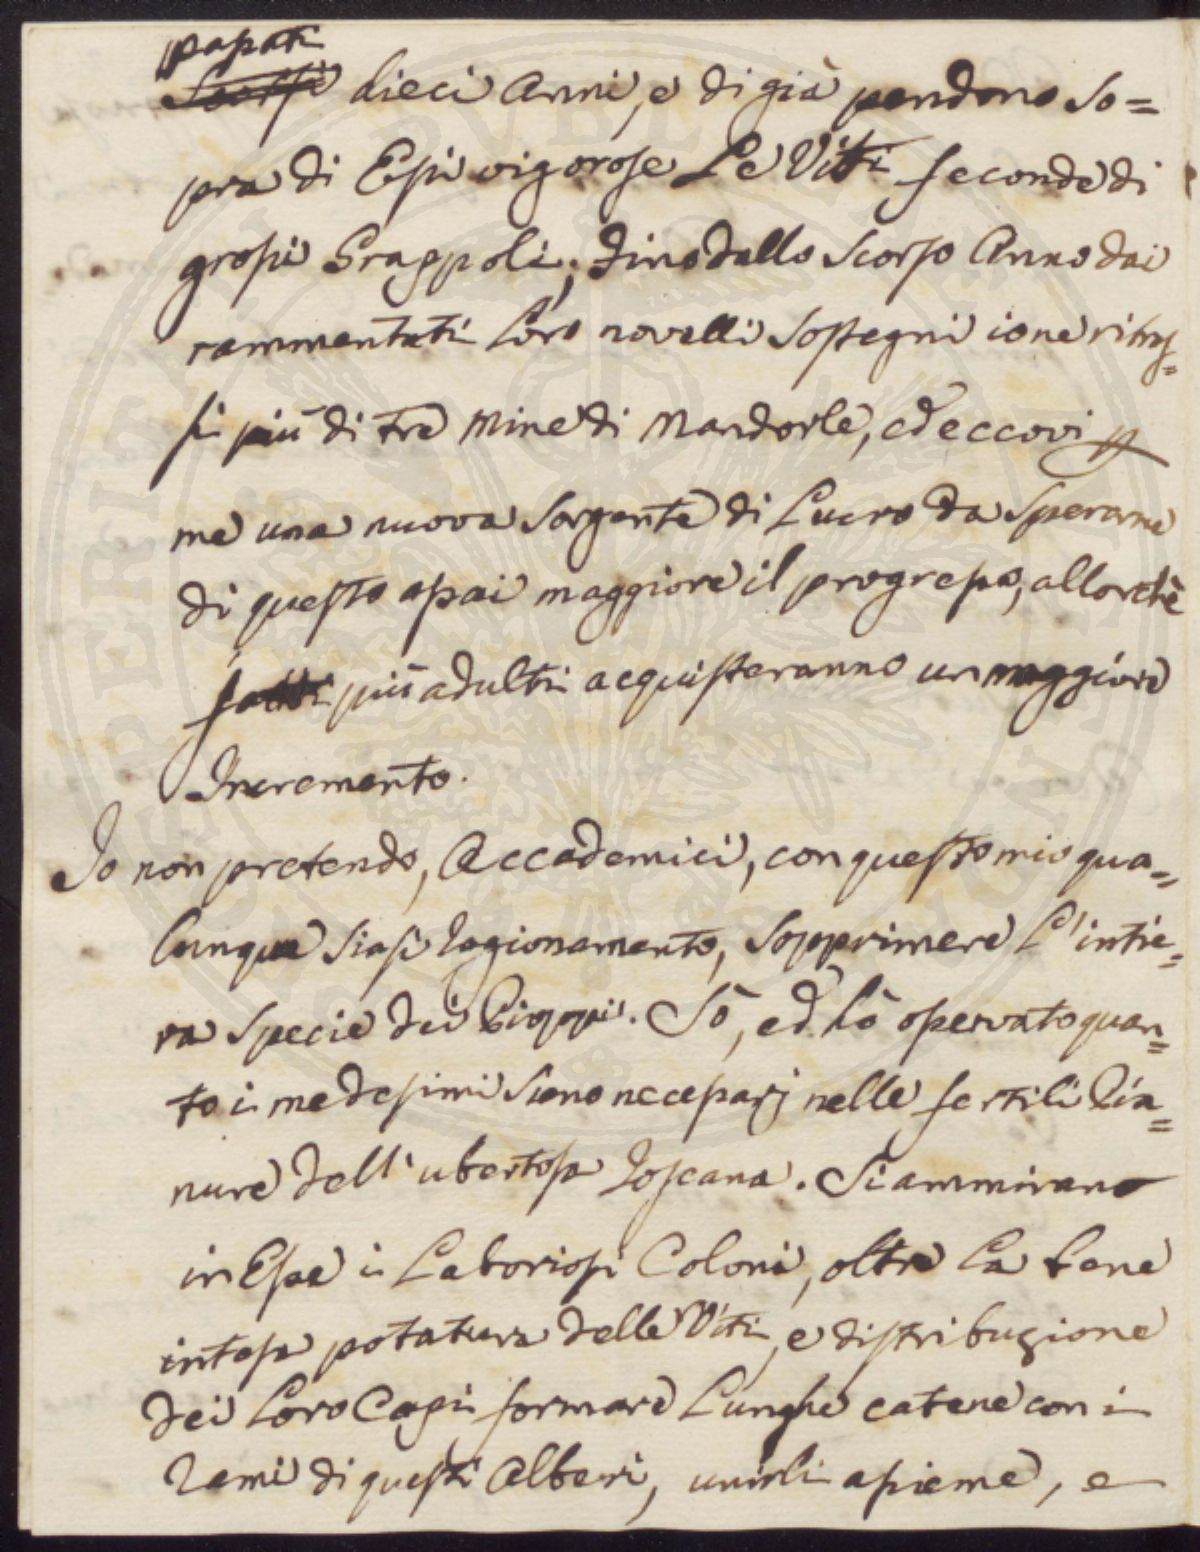 passati
Scorsi dieci Anni, e di già pendono So=
pra di Essi vigorose Le Viti feconde di
grossi Grappoli; Fino dallo Scorso Anno dai
rammentati Loro novelli Sostegni io ne ritras=
si più di tre Mine di Mandorle, ed eccovi p
me una nuova Sorgente di Lucro da Sperarne
di questo assai maggiore il progresso, allorchè
fatti più adulti acquisteranno un maggiore
Incremento.
Io non pretendo, Accademici, con questo mio qua=
lunque Siasi ragionamento, Sopprimere L'intie=
ra Specie dei Pioppi. Sò, ed hò osservato quan=
to i medesimi Sieno necessarj nelle fertili Pia=
nure dell'ubertosa Toscana. Si ammirano
in Essa i Laboriosi Coloni, oltre La bene
intesa potatura delle Viti, e distribuzione
dei Loro Capi formare Lunghe catene con i
rami di questi Alberi, unirli assieme, e